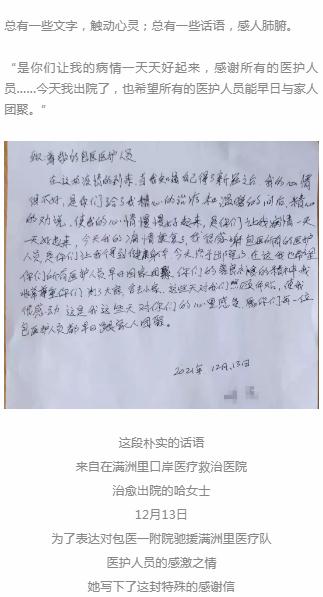 总有一些文字，触动心灵；总有一些话语，感人肺腑。
“是你们让我的病情一天天好起来，感谢所有的医护人
员......今天我出院了，也希望所有的医护人员能早日与家人
团聚。”
敬尊敬的包医医护人员
在这次疫情的到来，当我知道自己得了新冠之后，我的心情
很不好，是你们给了我精心的治疗和温暖的问后，精心
的劝说，使我的心情慢慢好起来，是你们让我病情一天
一天好起来，今天我的病情康复了，我很感谢包医所有的医护人
员是你们让我得到健康的身，今天终于出院了，在这我也希望
你们的所有医护人员早日回家团聚，你们的
非常尊重你们，为了大家，舍去小家，这些天对我们
很感动，这是我这些天对你们的心里感受，愿你们每一位
包医护人员都早日跟家人团聚。
2021年 12.13日
这段朴实的话语
来自在满洲里口岸医疗救治医院
治愈出院的哈女士
12月13日
为了表达对包医一附院驰援满洲里医疗队
医护人员的感激之情
她写下了这封特殊的感谢信